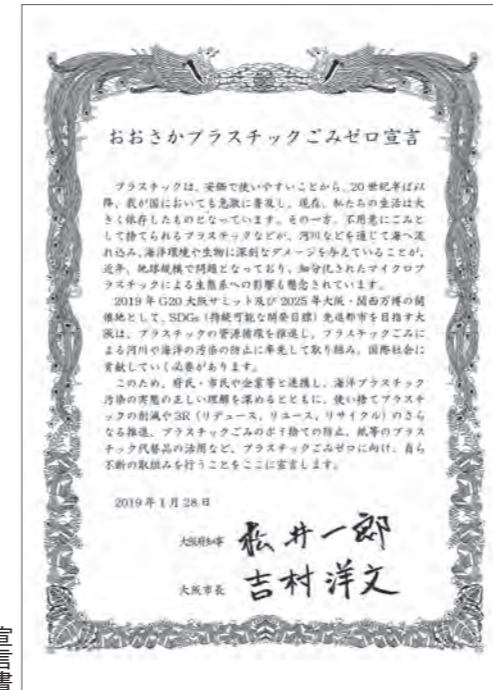 おおさかプラスチックごみゼロ宣言
プラスチックは、安価で使いやすいことから、20世紀半ば以
降、我が国においても急激に普及し、現在、私たちの生活は大
きく依存したものとなっています。その一方、不用意にごみと
して捨てられるプラスチックなどが、河川などを通じて海へ流
れ込み、海洋環境や生物に深刻なダメージを与えていることが、
近年、地球規模で問題となっており、細分化されたマイクロプ
ラスチックによる生態系への影響も懸念されています。
2019年G20大阪サミット及び2025年大阪・関西万博の開
催地として、SDGs（持続可能な開発目標）先進都市を目指す大
阪は、プラスチックの資源循環を推進し、プラスチックごみに
よる河川や海洋の汚染の防止に率先して取り組み、国際社会に
貢献していく必要があります。
このため、府民・市民や企業等と連携し、海洋プラスチック
汚染の実態の正しい理解を深めるとともに、使い捨てプラスチ
ックの削減や3R（リデュース、リユース、リサイクル）のさら
なる推進、プラスチックごみのポイ捨ての防止、紙等のプラス
チック代替品の活用など、プラスチックごみゼロに向け、自ら
不断の取組みを行うことをここに宣言します。
2019年1月28日
大阪府知事 松井一郎
大阪市長 吉村洋文
宣言書